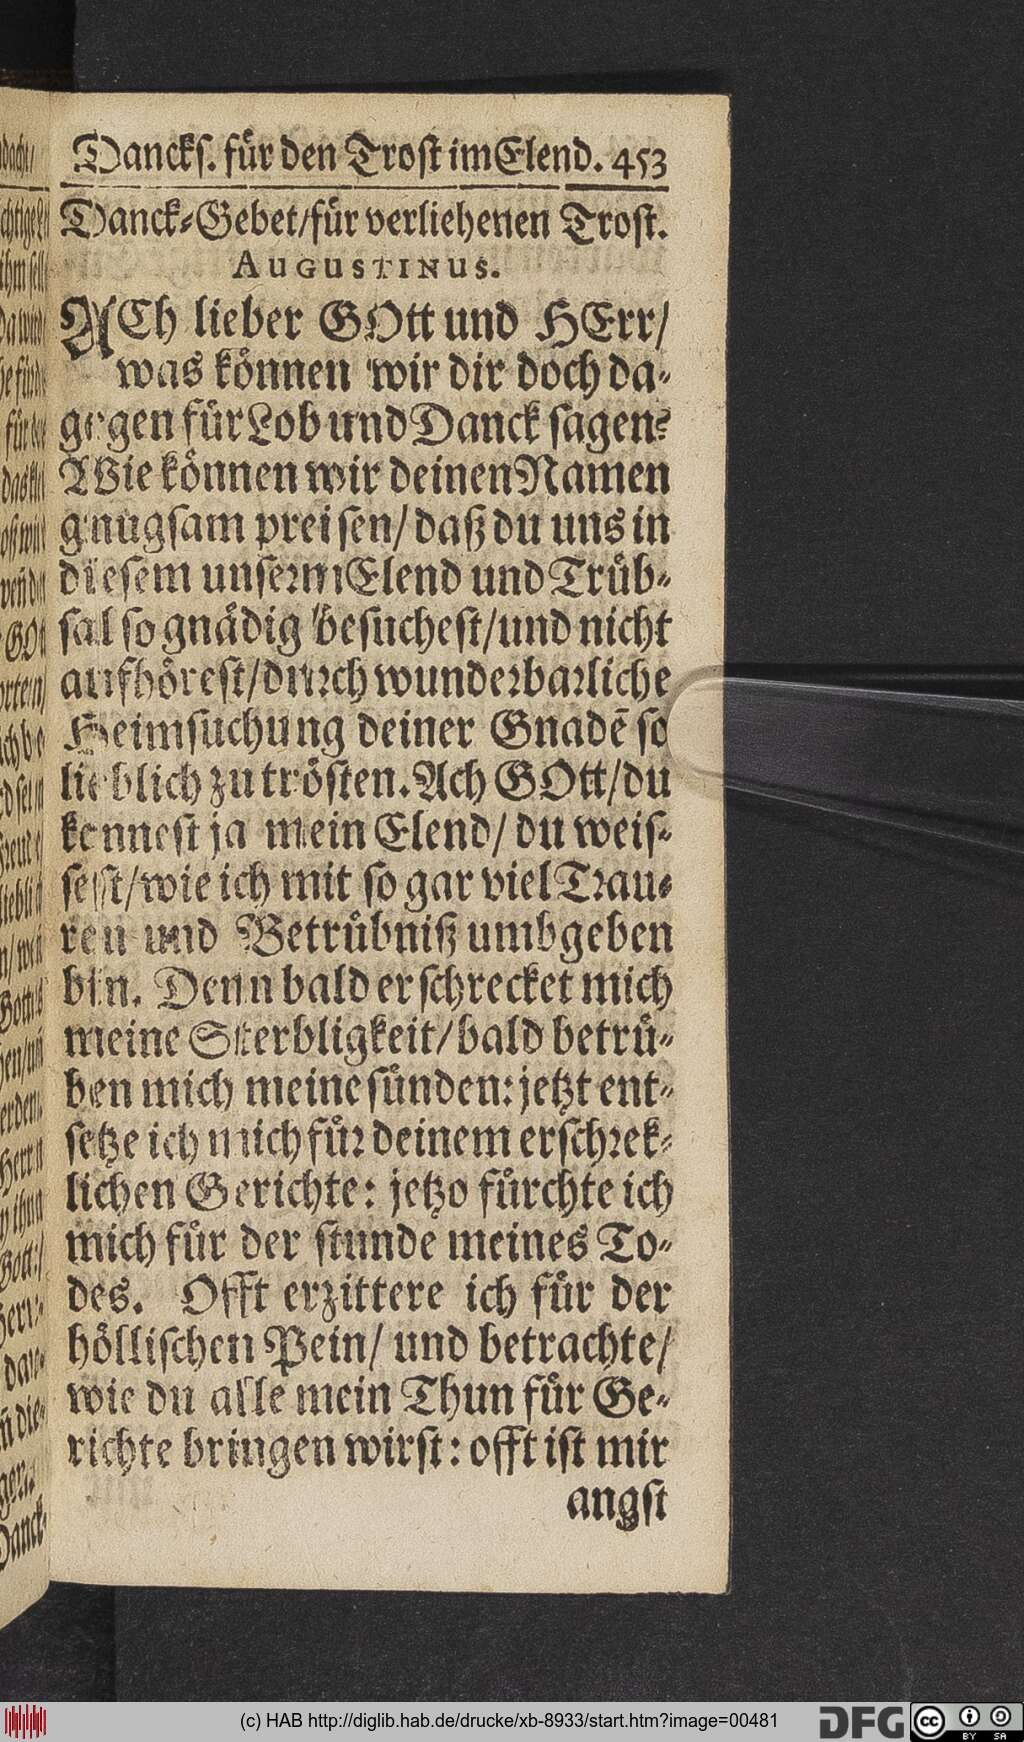 Dancks. für den Trost im Elend. 453
Danck-Gebet/für verliehenen Trost.
AUGUSTINUS.
ACh lieber GOtt und HErr/
was können wir dir doch da-
gegen für Lob und Danck sagen?
Wie können wir deinen Namen
gnugsam preisen/ daß du uns in
diesem unserm Elend und Trüb-
sal so gnädig besuchest/und nicht
aufhörest/durch wunderbarliche
Heimsuchung deiner Gnadē so
lieblich zu trösten. Ach GOtt/du
kennest ja mein Elend/ du weis-
sest/wie ich mit so gar viel Trau-
ren und Betrübniß umbgeben
bin. Denn bald erschrecket mich
meine Sterbligkeit/bald betrü-
ben mich meine sünden: jetzt ent-
setze ich mich für deinem erschrek-
lichen Gerichte: jetzo fürchte ich
mich für der stunde meines To-
des. Offt erzittere ich für der
höllischen Pein/ und betrachte/
wie du alle mein Thun für Ge-
richte bringen wirst: offt ist mir
angst
(c) HAB http://diglib.hab.de/drucke/xb-8933/start.htm?image=00481
DFG
cc
BY SA